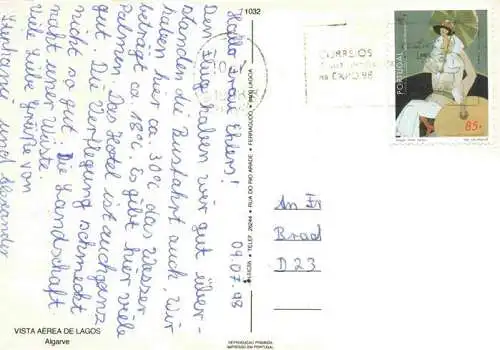 Hallo Frau Ehlers!
09.07.98
Den Flug haben wir gut über-
standen die Busfahrt auch, Wir
haben hier ca. 30°C das Wasser
beträgt ca. 18°C. Es gibt hier viele
Palmen. Das Hotel ist auch ganz
gut. Die Verpflegung schmeckt
nicht so gut. Die Landschaft
macht unser Wüste.
Viele liebe Grüße von
Stephanie und Alexander
VISTA AÉREA DE LAGOS
Algarve
1032
TELEF. 39244 ● RUA DO RIO ARADE ● FERRAGUDO ● 8400 LAGOA
REPRODUÇÃO PROIBIDA
IMPRESSO EM PORTUGAL
CORREIOS
NA EXPO 98
PORTUGAL
85.
An Fr
Brad
D 23